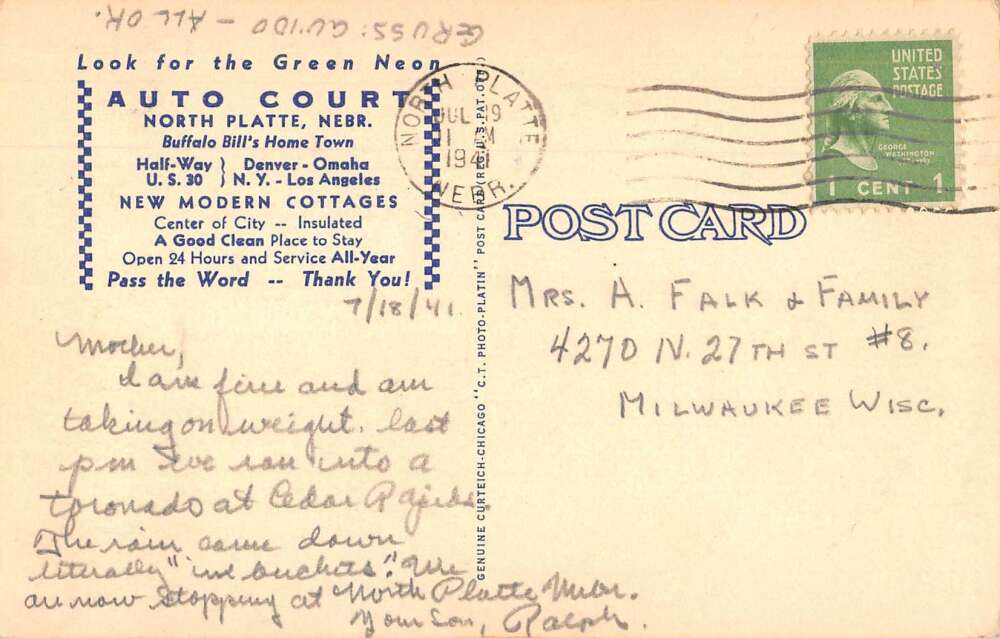 GRUSS: GUIDO - ALL OK.
Look for the Green Neon
AUTO COURT
NORTH PLATTE, NEBR.
Buffalo Bill's Home Town
Half-Way } Denver - Omaha
U. S. 30 } N. Y. - Los Angeles
NEW MODERN COTTAGES
Center of City -- Insulated
A Good Clean Place to Stay
Open 24 Hours and Service All-Year
Pass the Word -- Thank You!
7/18/41.
Mother,
I am fine and am
taking on weight. Last
pm we ran into a
toronado at Cedar Rapids.
The rain came down
literally "in buckets". We
are now stopping at North Platte Nebr.
Your Son, Ralph.
GENUINE CURTEICH-CHICAGO "C. T. PHOTO-PLATIN" POST CARD (REG. U. S. PAT. OFF.)
NORTH PLATTE
JUL 19
1941
NEBR.
UNITED
STATES
POSTAGE
GEORGE
WASHINGTON
1 CENT 1
POST CARD
MRS. A. FALK & FAMILY
4270 N. 27TH ST #8.
MILWAUKEE WISC.